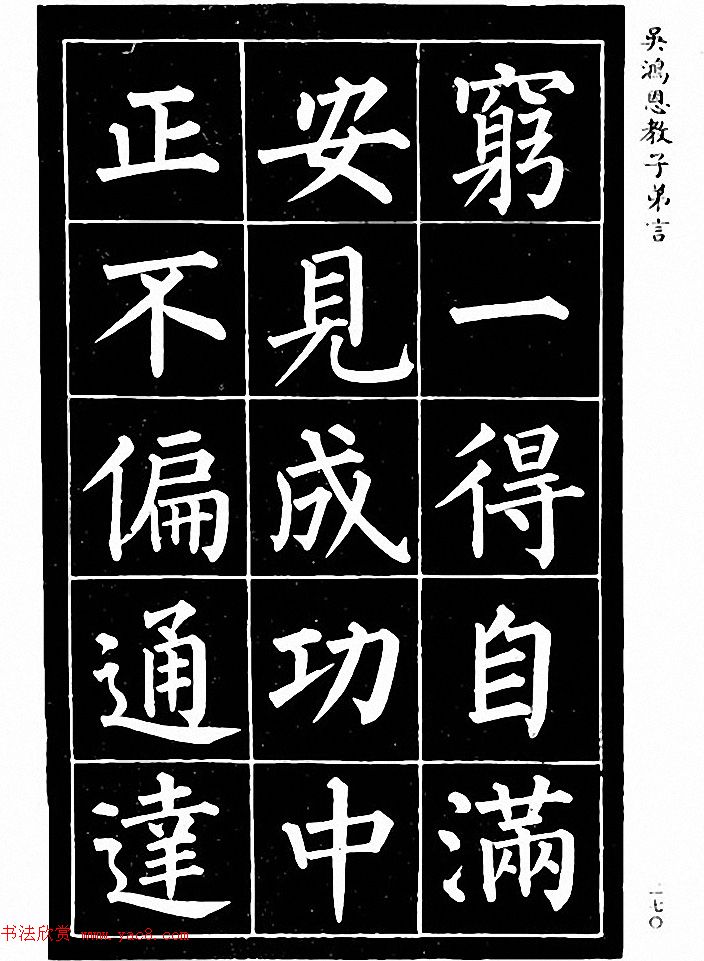 吳鴻恩教子弟言
窮一得自滿
安見成功中
正不偏通達
一七〇
书法欣赏 www.yac8.com